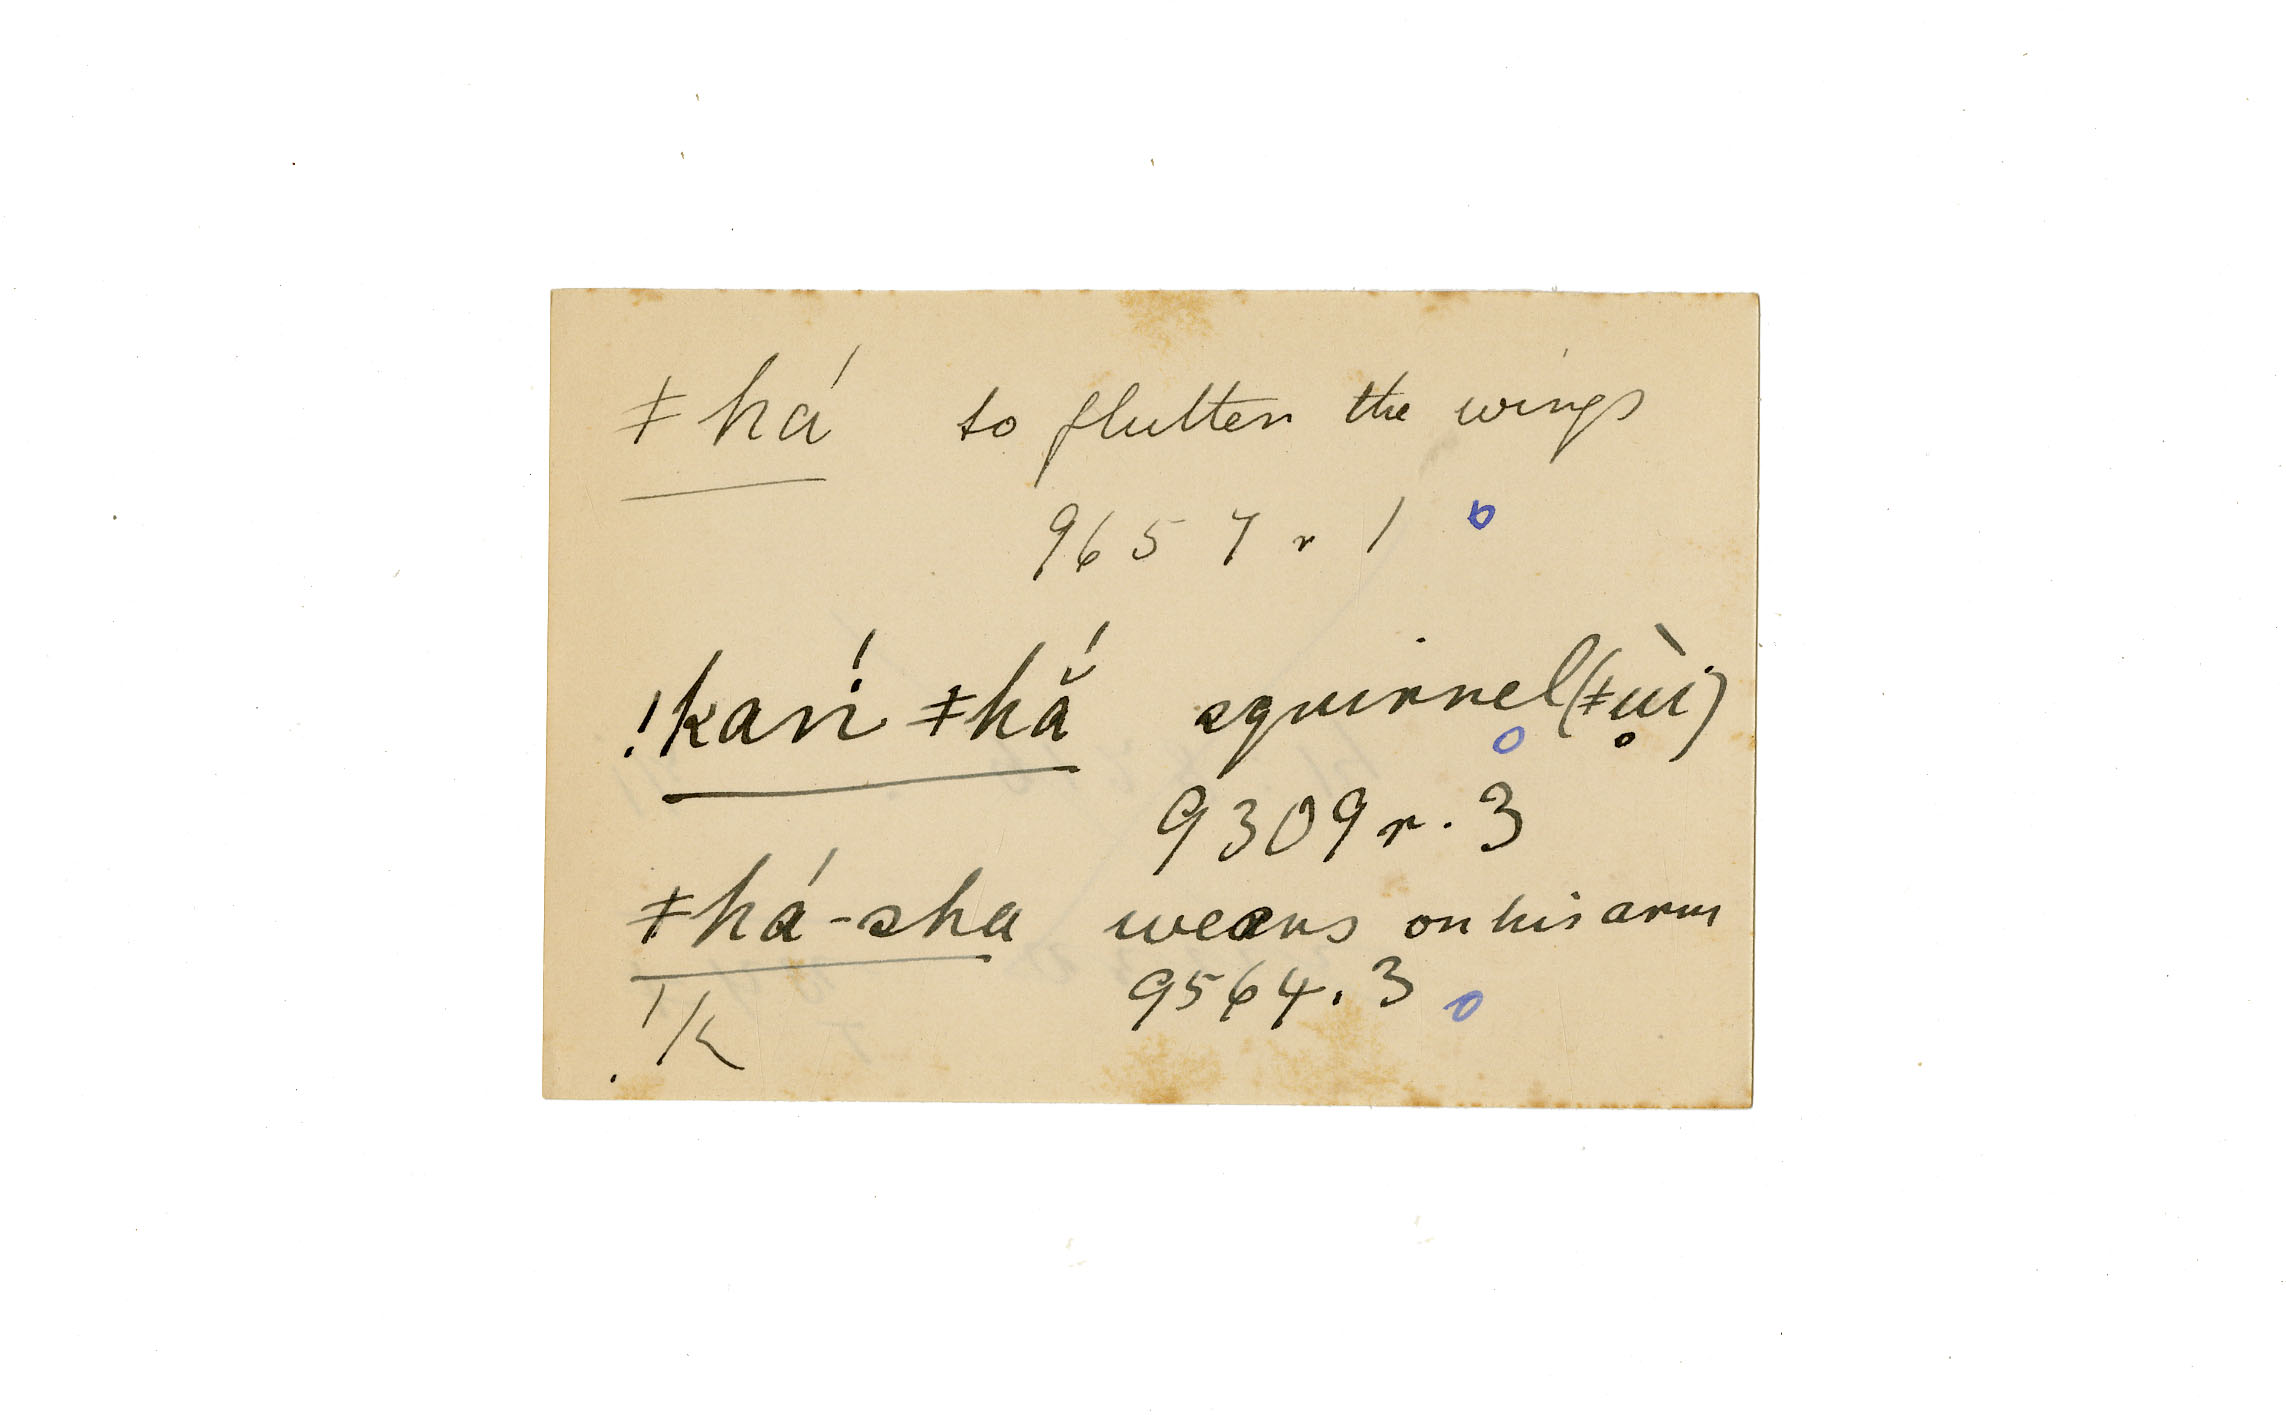 ǂhá to flutter the wings
9657 r 1
!kari̍ ǂhắ squirrel (ǂụ̀i)
9309 r. 3
ǂhá-sha wears on his arm
9564. 3